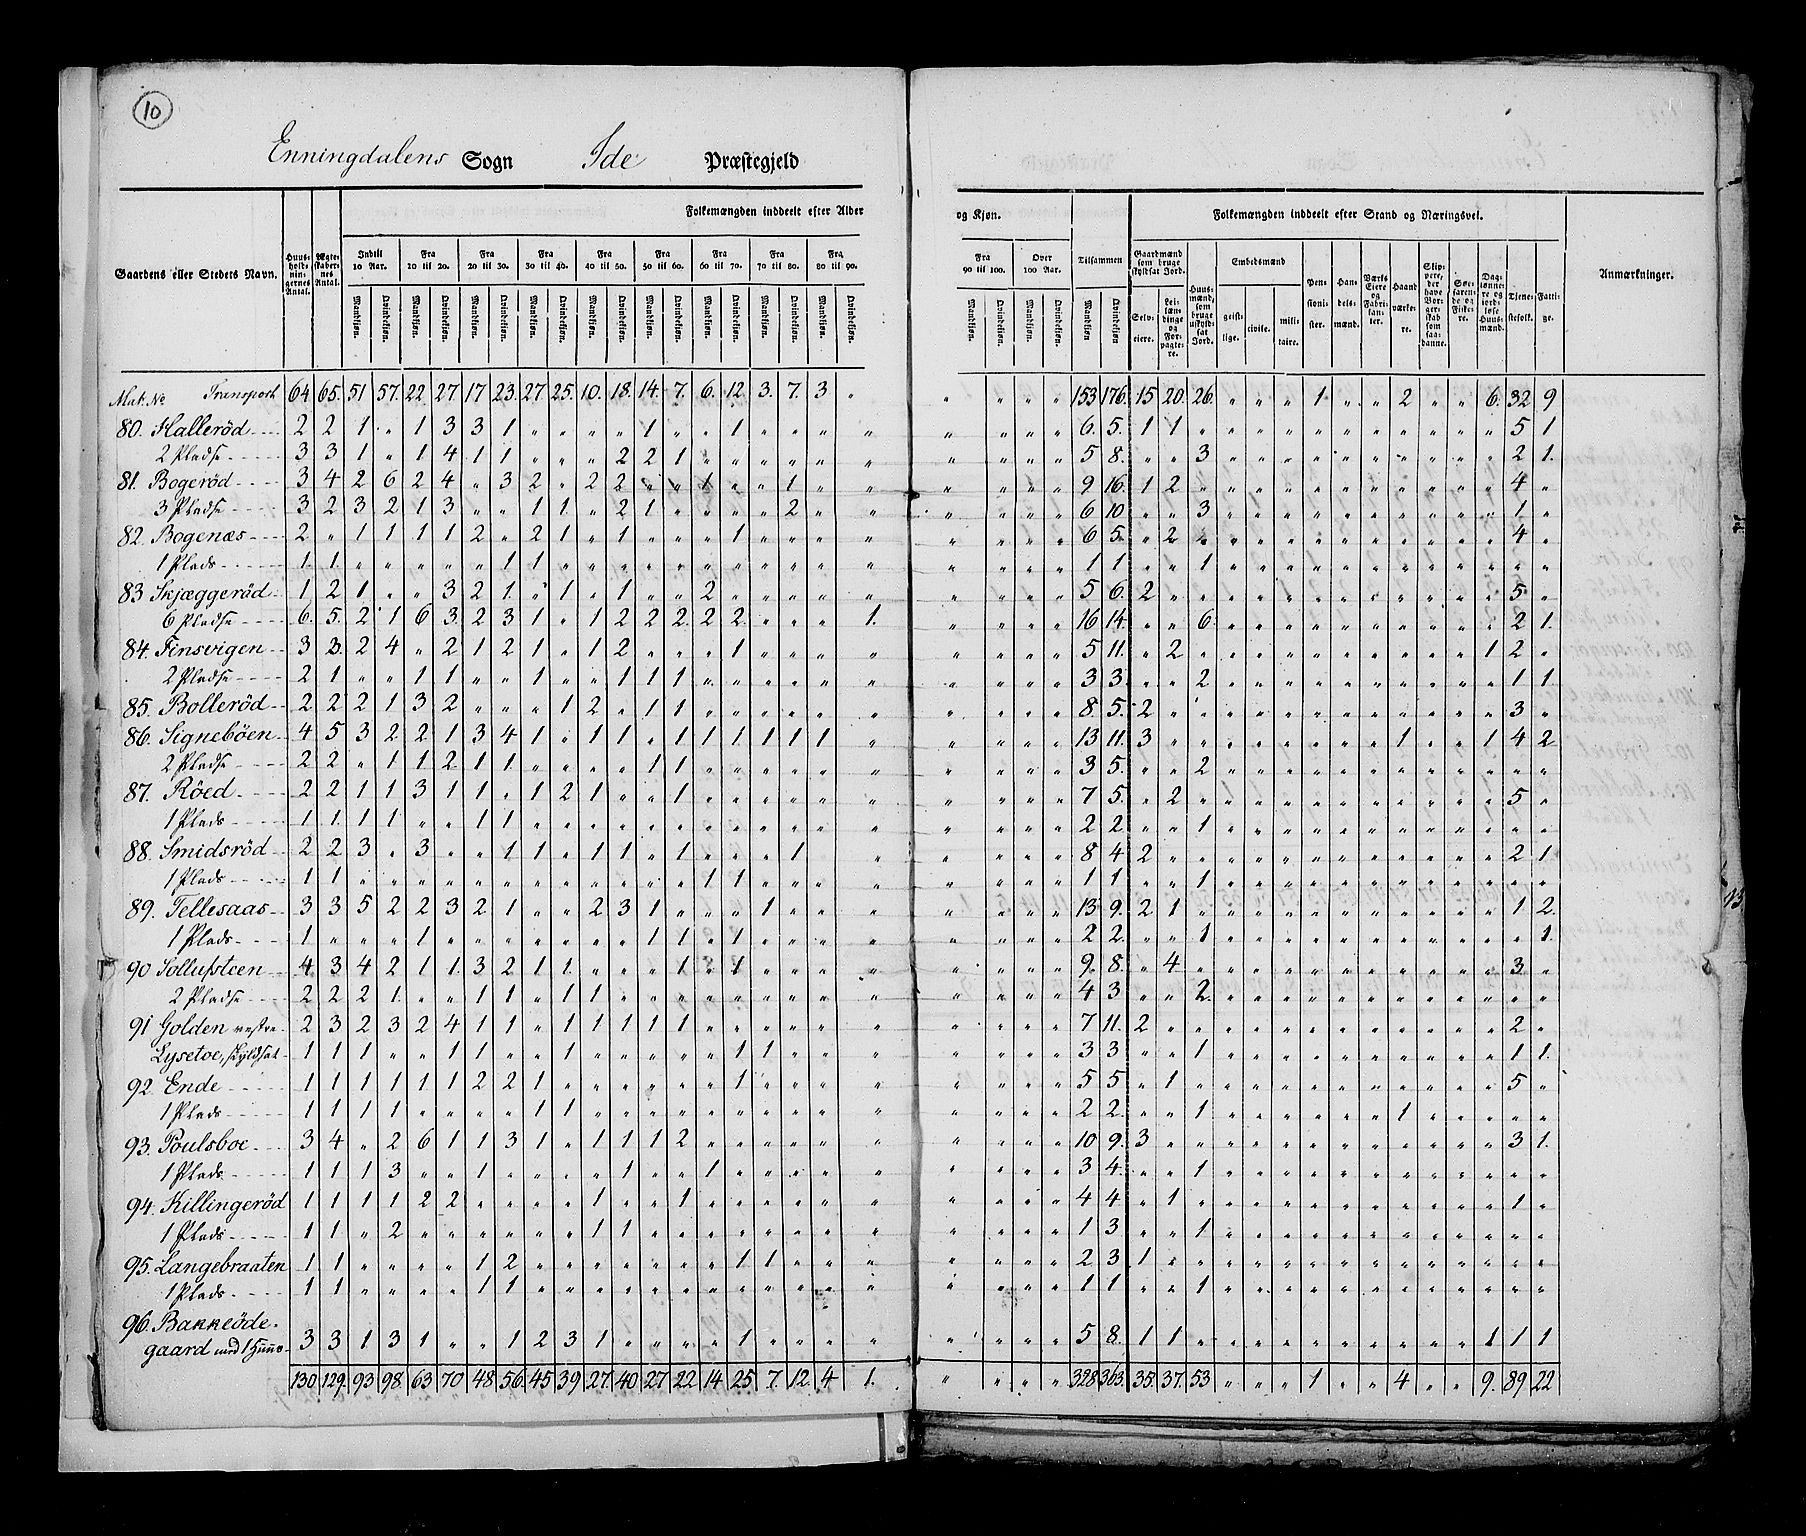 10
Enningdalens Sogn Ide Præstegjeld
Folkemængden inddeelt efter Alder og Kjøn. Folkemængden inddeelt efter Stand og Næringsvei.
Gaardens eller Stedets Navn. Huusholdningernes Antal. Ægteskabernes Antal. Indtil 10 Aar. Fra 10 til 20. Fra 20 til 30. Fra 30 til 40. Fra 40 til 50. Fra 50 til 60. Fra 60 til 70. Fra 70 til 80. Fra 80 til 90. Fra 90 til 100. Over 100 Aar. Tilsammen Gaardmænd som bruge skyldsat Jord. Huusmænd, som bruge uskyldsat Jord. Embedsmænd Pensionister. Handelsmænd. Værks Eiere og Fabrikanter. Haandværkere. Skippere, der have Borgerskab som saadanne. Søefarende og Fiskere. Daglønnere og jordløse Huusmænd. Tjenestefolk. Fattige. Anmærkninger.
Mandkjøn. Qvindekjøn. Selveiere. Leilændinge og Forpagtere. geistlige. civile. militaire.
Mat. No Transport 64 65. 51 57. 22 27 17 23. 27 25. 10. 18. 14. 7. 6. 12 3. 7. 3 " " " " " 153 176. 15 20. 26. " " " 1 " " 2 " " 6. 32 9
80. Halleröd 2 2 1 " 1 3 3 1 " " " " 1 " " 1 " " " " " " " " 6. 5. 1 1 " " " " " " " " " " " 5 1
2 Pladse 3 3 1 " 1 4 1 1 " " " 2 2 1 " " " " " " " " " " 5 8. " " 3 " " " " " " " " " " 2 1.
81. Bogeröd 3 4 2 6 2 4 " 3 2 " 2 2 " " 1 " " 1 " " " " " " 9 16. 1 2 " " " " " " " " " " " 4 "
3 Pladse 3 2 3 2 1 3 " " 1 1 " 2 1 " " " " 2 " " " " " " 6 10 " " 3 " " " " " " " " " " 1 "
82. Bogenæs 2 " 1 1 1 1 2 " 2 1 " 1 " " " 1 " " " " " " " " 6 5. " 2 " " " " " " " " " " " 4 "
1 Plads 1. 1. " " " " " 1 1 " " " " " " " " " " " " " " " 1 1 " " 1 " " " " " " " " " " " "
83 Skjæggeröd 1 2 1 " " 3 2 1. " 1 " 1 " " 2 " " " " " " " " " 5 6. 2 " " " " " " " " " " " " 5 "
6 Pladse 6. 5. 2 1 6 3. 2 3 1 " 1 2 2 2. 2 2. " " " 1. " " " " 16 14. " " 6. " " " " " " " " " " 2 1.
84. Finsvigen 3 3. 2 4 " 2 1 2 1 " 1 2 " " " 1 " " " " " " " " 5 11. " 2 " " " " " " " " " " 1 2 "
2 Pladse 2 1 " " 1 1 " " 1 " " 1 1 1 " " " " " " " " " " 3 3. " " 2 " " " " " " " " " " 1 1.
85. Bolleröd 2 2 2 1 3 2 " " " 1 2 " 1 1 " " " " " " " " " " 8 5. 2 " " " " " " " " " " " " 3 "
86. Signebøen 4 5 3 2 2 1 3 4 1 " 1 1 " 1 1 1 1 1 1 " " " " " 13 11. 3 " " " " " " " " 1 " " 1 4 2
2 Pladse 2 2 " 1 1 2 1 1 " " " " 1 1 " " " " " " " " " " 3 5. " " 2 " " " " " " " " " " " "
87. Röed 2 2 1 1 3 1 1 " 1 2 1 " " 1 " " " " " " " " " " 7 5. " 2 " " " " " " " " " " " 5 "
1 Plads 1 1. 1 1 " " 1 1 " " " " " " " " " " " " " " " " 2 2 " " 1 " " " " " " " " " " " "
88. Smidsröd 2 2 3 " 3 " " 1 1 " 1 1 " 1 " " " 1 " " " " " 8 4 2 " " " " " " " " " " " " 2 1.
1 Plads 1 1 " " " " " " " " " " " " 1 1 " " " " " " " " 1 1 " " 1 " " " " " " " " " " " "
89. Tellesaas 3 3 5 2 2 3 2 1 " " 2 3 1 " " " 1 " " " " " " " 13 9. 2 1 " " " " " " " " " " " 1 2.
1 Plads 1 " " " 1 " " " " " " " 1 1 " 1 " " " " " " " " 2 2. " " 1 " " " " " " " " " " " 1.
90 Sollufsteen 4 3 4 2 1 1 3 2 1 1 " " " 1 " 1 " " " " " " " " 9. 8. " 4 " " " " " " " " " " " 3 "
2 Pladse 2 2 2 1 " " 1 1 " 1 1 " " " " " " " " " " " " " 4 3 " " 2. " " " " " " " " " " " "
91 Golden vestre 2 3 2 3 2 4 1 1 " 1 1 1 1 1 " " " " " " " " " " 7 11. 2 " " " " " " " " " " " " 2 "
Lysetoe, skyldsat 1 1 1 " " 1 1 " " 1 " " " " " 1 1 " " " " " " " 3 3 " " 1 " " " " " " " " " " 1 1.
92. Ende 1 1 1 1 1 1 2 2 1 " " " " " " 1 " " " " " " " " 5 5 " 1 " " " " " " " " " " " 5 "
1 Plads 1 1 1 1 " " " " 1 1 " " " " " " " " " " " " " " 2 2. " " 1 " " " " " " 1 " " " " "
93. Poulsboe 3 4 " 2 6 1 1 3 1 " 1 1 1 2 " " " " " " " " " " 10 9. 3 " " " " " " " " " " " " 3 1.
1 Plads 1 1 1 3 " " 1 " " " " 1 " " 1 " " " " " " " " " 3 4. " " 1 " " " " " " " " " " " "
94. Killingeröd 1 1 1 1 2 2 " " " " 1 " " 1 " " " " " " " " " " 4 4 " 1 " " " " " " " " " " " 1 "
1 Plads 1 1 " 2 " " " " " " 1 1 " " " " " " " " " " " " 1 3 " " 1 " " " " " " " " " " " "
95. Langebraaten 1 1 " " " " 1 2 " " " " " " " 1 1 " " " " " " " 2 3 1 " " " " " " " " " " " " " "
1 Plads 1 1 " " " " 1 1 " " " " " " " " " " " " " " " " 1 1 " " 1 " " " " " " " " " " " "
96. Bakkeöde-
gaard med 1 Huus 3 3 1 3 1 " " 1 2 3 1 " " " " 1 " " " " " " " " 5 8. 1 1 " " " " " " " " " " 1 1 1
130 129. 93 98. 63 70 48 56. 45 39 27. 40 27 22 14 25 7. 12. 4 1. " " " " 328 363. 35. 37. 53 " " " 1 " " 4 " " 9. 89 22